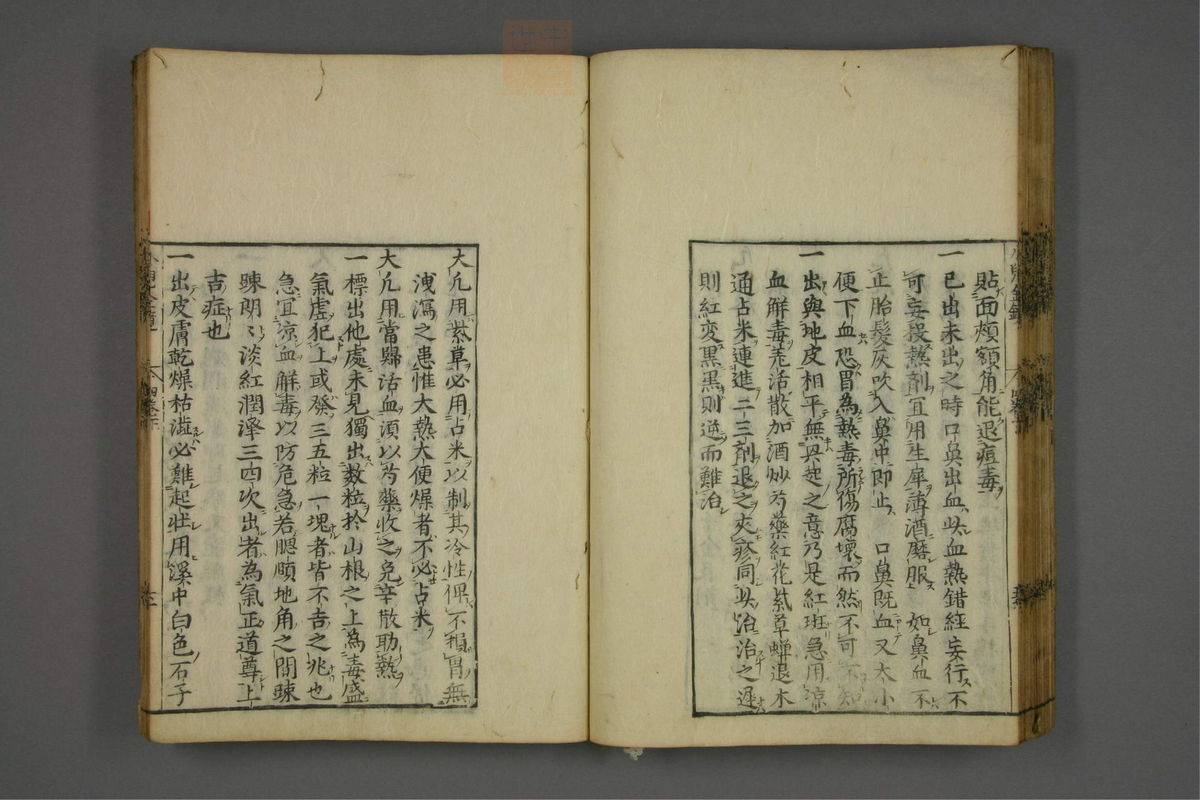 貼面頰額角能退痘毒
一已出未出之時口鼻出血此血熱錯經妄行不
可妄投熱劑宜用生犀薄酒磨服 如鼻血不
止胎髮灰吹入鼻中即止 口鼻既血又大小
便下血恐胃為熱毒所傷腐壞而然不可不知
一出與地皮相平無起之意乃是紅斑急用涼
血解毒活散加酒炒芍藥紅花紫草蟬退木
通占米連進二三劑退之夾疹同此治治之遲
則紅変黒黒則逆而難治
大凡用紫草必用占米以制其冷性俾不損胃無
洩瀉之患惟大熱大便燥者不必占米
大凡用當歸活血須以芍藥收之免辛散助熱
一標出他處未見獨出数粒於山根之上為毒盛
氣虛犯上或發三五粒一塊者皆不吉之兆也
急宜涼血解毒以防危急若腮頤地角之間踈
踈朗〻淡紅潤澤三四次出者為氣正道尊上
吉症也
一出皮膚乾燥枯澁必難起壯用溪中白色石子